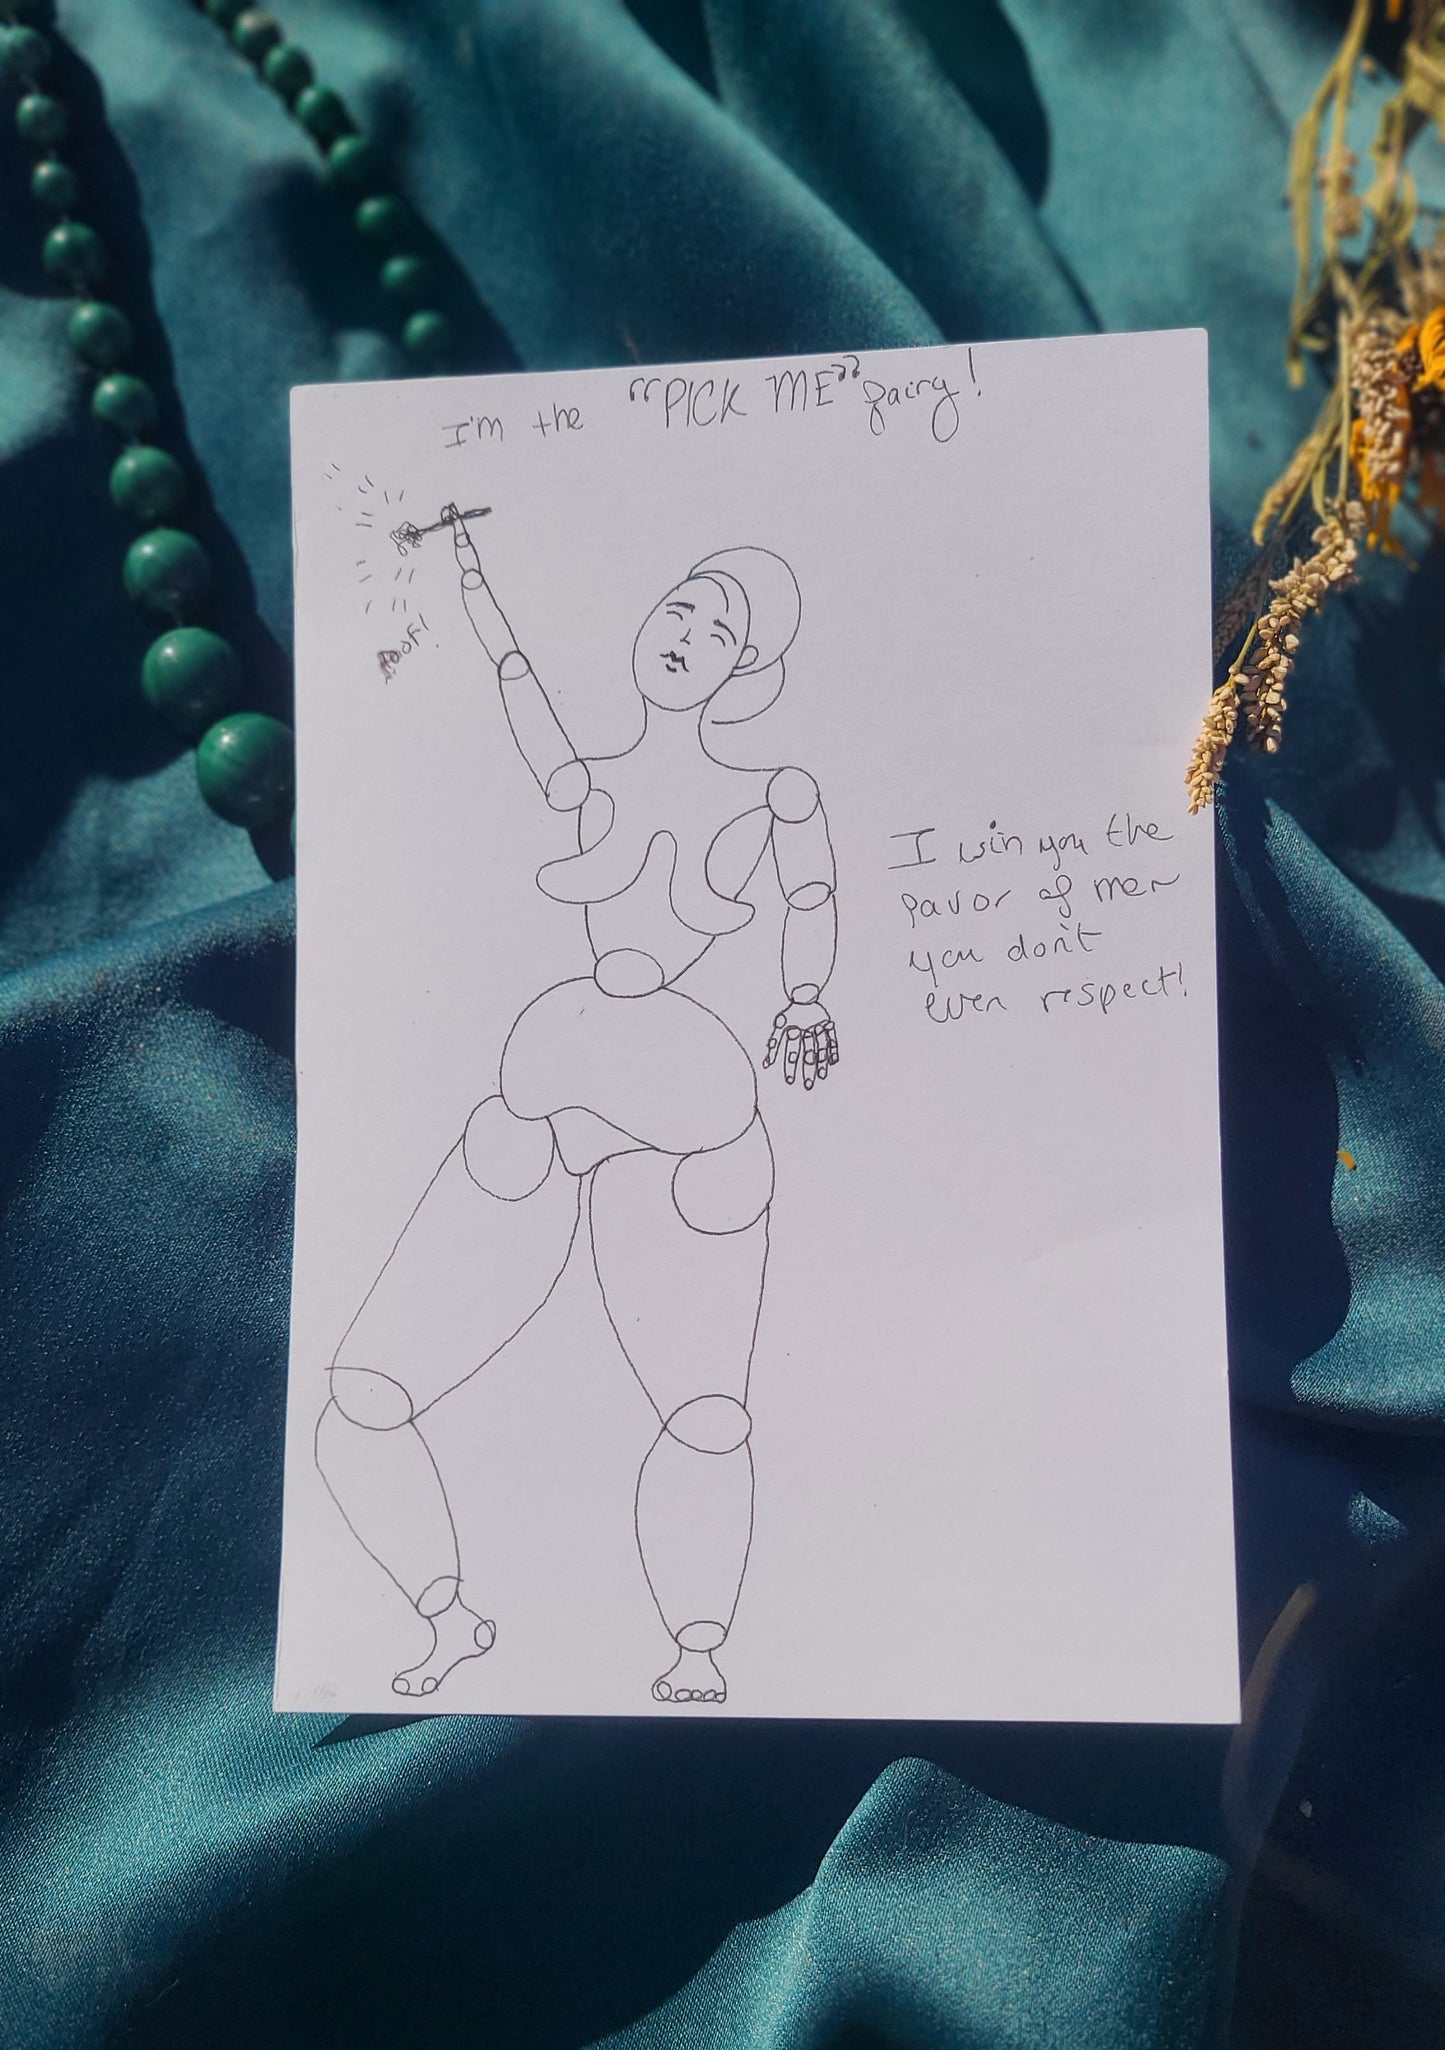 I'm the "PICK ME" fairy!
Poof!
I win you the
favor of men
you don't
even respect!